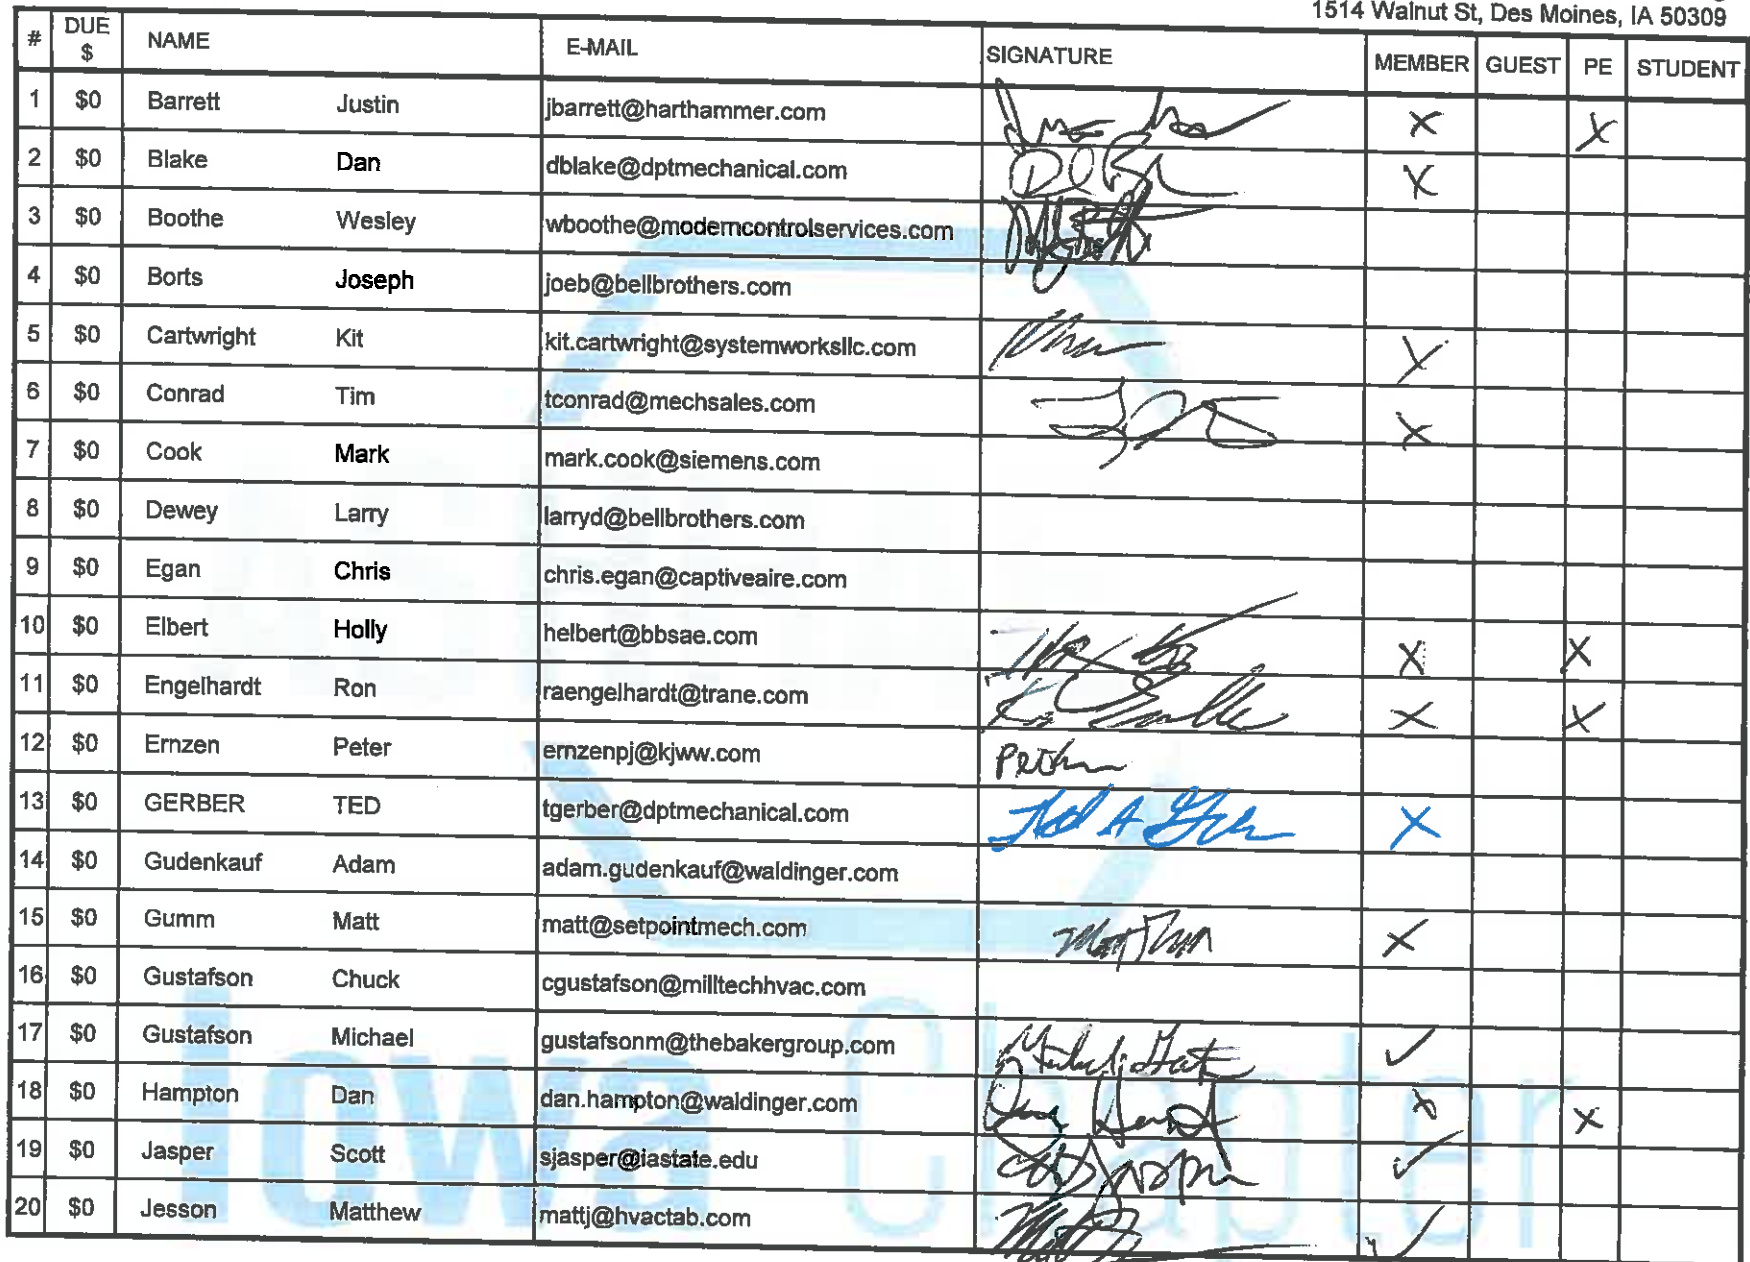 1514 Walnut St, Des Moines, IA 50309
# DUE $ NAME E-MAIL SIGNATURE MEMBER GUEST PE STUDENT
1 $0 Barrett Justin jbarrett@harthammer.com X X
2 $0 Blake Dan dblake@dptmechanical.com X
3 $0 Boothe Wesley wboothe@moderncontrolservices.com
4 $0 Borts Joseph joeb@bellbrothers.com
5 $0 Cartwright Kit kit.cartwright@systemworksllc.com X
6 $0 Conrad Tim tconrad@mechsales.com X
7 $0 Cook Mark mark.cook@siemens.com
8 $0 Dewey Larry larryd@bellbrothers.com
9 $0 Egan Chris chris.egan@captiveaire.com
10 $0 Elbert Holly helbert@bbsae.com X X
11 $0 Engelhardt Ron raengelhardt@trane.com X X
12 $0 Ernzen Peter ernzenpj@kjww.com
13 $0 GERBER TED tgerber@dptmechanical.com Ted A Gerber X
14 $0 Gudenkauf Adam adam.gudenkauf@waldinger.com
15 $0 Gumm Matt matt@setpointmech.com X
16 $0 Gustafson Chuck cgustafson@milltechhvac.com
17 $0 Gustafson Michael gustafsonm@thebakergroup.com ✓
18 $0 Hampton Dan dan.hampton@waldinger.com X X
19 $0 Jasper Scott sjasper@iastate.edu ✓
20 $0 Jesson Matthew mattj@hvactab.com ✓
Iowa Chapter